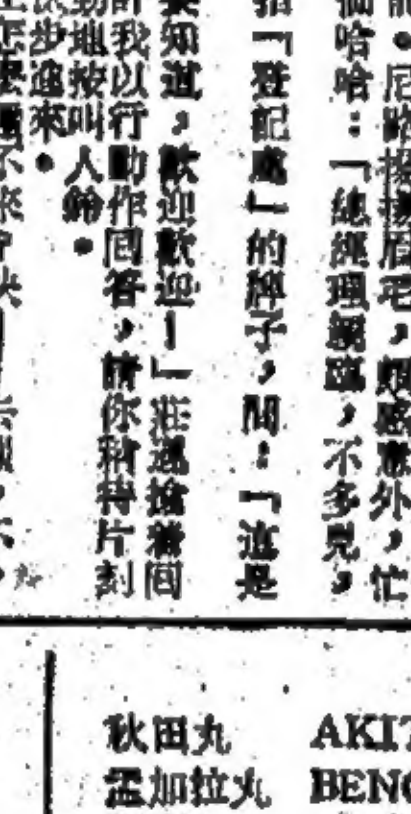 。尼路揚揚眉毛，頗感意外，忙
個哈哈：「總經理親臨，不多見，
指「登記處」的牌子，問：「這是
知道，歡迎歡迎！」莊遜搶着
我以行動作回答，請你稍待片刻
地按叫人鈴。
步進來。
秋田丸 AKI
孟加拉丸 BENG